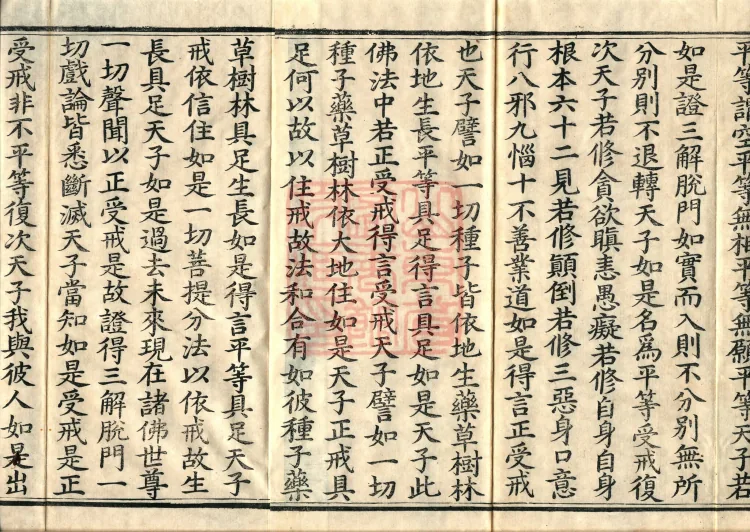 平等證空平等無相平等無願平等天子若
如是證三解脫門如實而入則不分別無所
分別則不退轉天子如是名爲平等受戒復
次天子若修貪欲瞋恚愚癡若修自身自身
根本六十二見若修顚倒若修三惡身口意
行八邪九惱十不善業道如是得言正受戒
也天子譬如一切種子皆依地生藥草樹林
依地生長平等具足得言具足如是天子此
佛法中若正受戒得言受戒天子譬如一切
種子藥草樹林依大地住如是天子正戒具
足何以故以住戒故法和合有如彼種子藥
草樹林具足生長如是得言平等具足天子
戒依信住如是一切菩提分法以依戒故生
長具足天子如是過去未來現在諸佛世尊
一切聲聞以正受戒是故證得三解脫門一
切戲論皆悉斷滅天子當知如是受戒是正
受戒非不平等復次天子我與彼人如是出